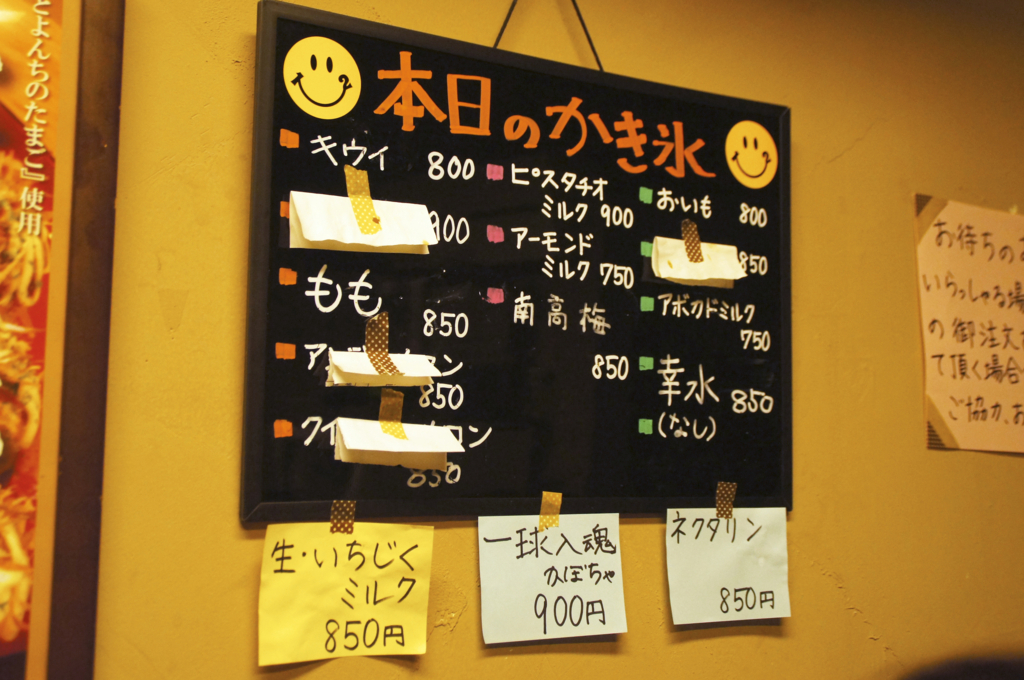 とよんちのたまご』使用
本日のかき氷
キウイ 800
900
もも
850
850
クイ ロン
850
ピスタチオ
ミルク 900
アーモンド
ミルク 750
南高梅
850
おいも 800
850
アボカドミルク
750
幸水 850
(なし)
生・いちじく
ミルク
850円
一球入魂
かぼちゃ
900円
ネクタリン
850円
お待ちのお
いらっしゃる場
の御注文
て頂く場合
ご協力、お